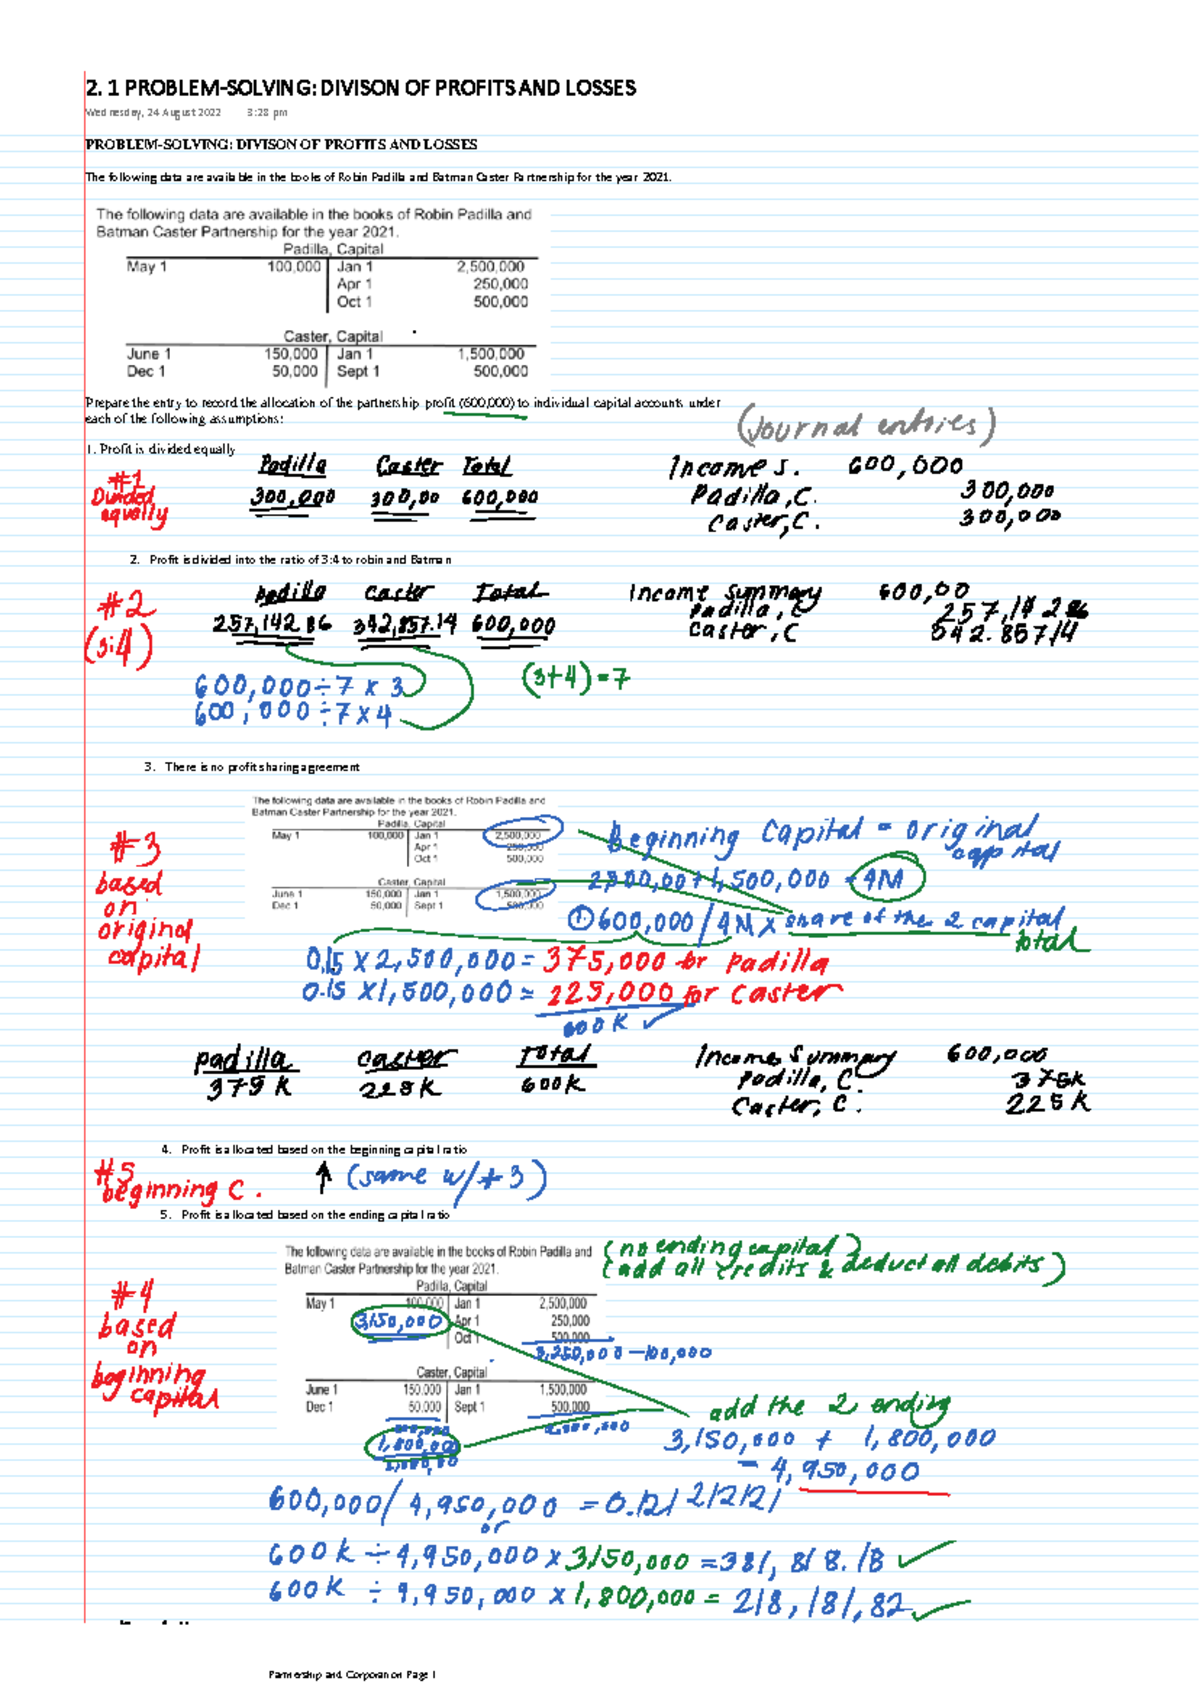 2. 1 PROBLEM-SOLVING: DIVISON OF PROFITS AND LOSSES
Wednesday, 24 August 2022 3:28 pm
PROBLEM-SOLVING: DIVISON OF PROFITS AND LOSSES
The following data are available in the books of Robin Padilla and Batman Caster Partnership for the year 2021.
The following data are available in the books of Robin Padilla and
Batman Caster Partnership for the year 2021.
Padilla, Capital
May 1 100,000 Jan 1 2,500,000
Apr 1 250,000
Oct 1 500,000
Caster, Capital
June 1 150,000 Jan 1 1,500,000
Dec 1 50,000 Sept 1 500,000
Prepare the entry to record the allocation of the partnership profit (600,000) to individual capital accounts under
each of the following assumptions:
(Journal entries)
1. Profit is divided equally
#1
Divided
equally
Padilla Caster Total
300,000 300,00 600,000
Income S. 600,000
Padilla, C. 300,000
Caster, C. 300,000
2. Profit is divided into the ratio of 3:4 to robin and Batman
#2
(3:4)
Padilla Caster Total
257,142.86 342,857.14 600,000
Income Summary 600,00
Padilla, C
Caster, C
600,000÷7 x 3
600,000÷7 x 4
(3+4)=7
3. There is no profit sharing agreement
The following data are available in the books of Robin Padilla and
Batman Caster Partnership for the year 2021.
Padilla, Capital
May 1 100,000 Jan 1 2,500,000
Apr 1 250,000
Oct 1 500,000
Caster, Capital
June 1 150,000 Jan 1 1,500,000
Dec 1 50,000 Sept 1 500,000
#3
based
on
original
capital
Beginning Capital = original
capital
1,500,000 = 4M
① 600,000 / 4M x share of the 2 capital
total
0.15 x 2,500,000 = 375,000 for Padilla
0.15 x 1,500,000 = 225,000 for Caster
600K ✓
Padilla Caster Total
375K 225K 600K
Income Summary 600,000
Padilla, C. 375K
Caster, C. 225K
4. Profit is allocated based on the beginning capital ratio
#5
beginning C.
↑ (same w/ #3)
5. Profit is allocated based on the ending capital ratio
The following data are available in the books of Robin Padilla and
Batman Caster Partnership for the year 2021.
(no ending capital)
(add all credits & deduct all debits)
Padilla, Capital
May 1 100,000 Jan 1 2,500,000
3,150,000 Apr 1 250,000
Oct 1 500,000
3,250,000 - 100,000
Caster, Capital
June 1 150,000 Jan 1 1,500,000
Dec 1 50,000 Sept 1 500,000
1,800,00
#4
based
on
beginning
capital
add the 2 ending
3,150,000 + 1,800,000
= 4,950,000
600,000/4,950,000 = 0.12121212121
or
600K ÷ 4,950,000 x 3,150,000 = 381,818.18 ✓
600K ÷ 4,950,000 x 1,800,000 = 218,181.82 ✓
Partnership and Corporation Page 1